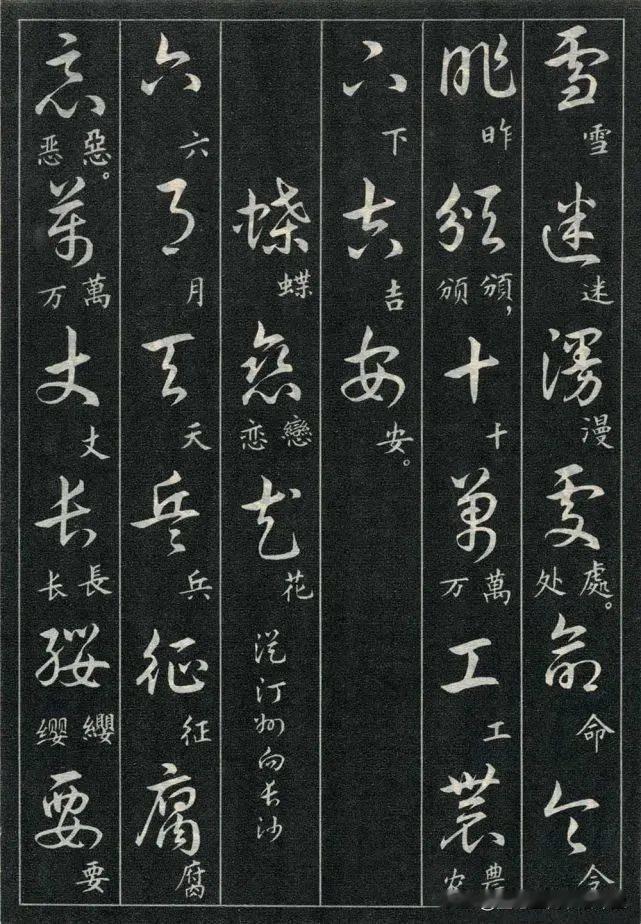 雪 雪 迷 迷 漫 漫 處 處。处 命 命 令 令
昨 昨 頒 頒，颁 十 十 萬 萬万 工 工 農 農农
下 下 吉 吉 安 安。
蝶 蝶 戀 戀恋 花 花 從汀州向長沙
六 六 月 月 天 天 兵 兵 征 征 腐 腐
惡 惡。恶 萬 萬万 丈 丈 長 長长 纓 纓缨 要 要